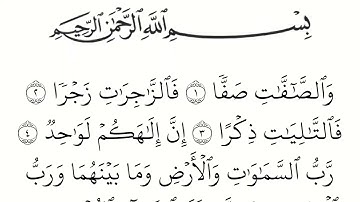 بِسْمِ ٱللَّهِ ٱلرَّحْمَٰنِ ٱلرَّحِيمِ
وَٱلصَّٰٓفَّٰتِ صَفًّا ١ فَٱلزَّٰجِرَٰتِ زَجْرًا ٢
فَٱلتَّٰلِيَٰتِ ذِكْرًا ٣ إِنَّ إِلَٰهَكُمْ لَوَٰحِدٌ ٤
رَّبُّ ٱلسَّمَٰوَٰتِ وَٱلْأَرْضِ وَمَا بَيْنَهُمَا وَرَبُّ